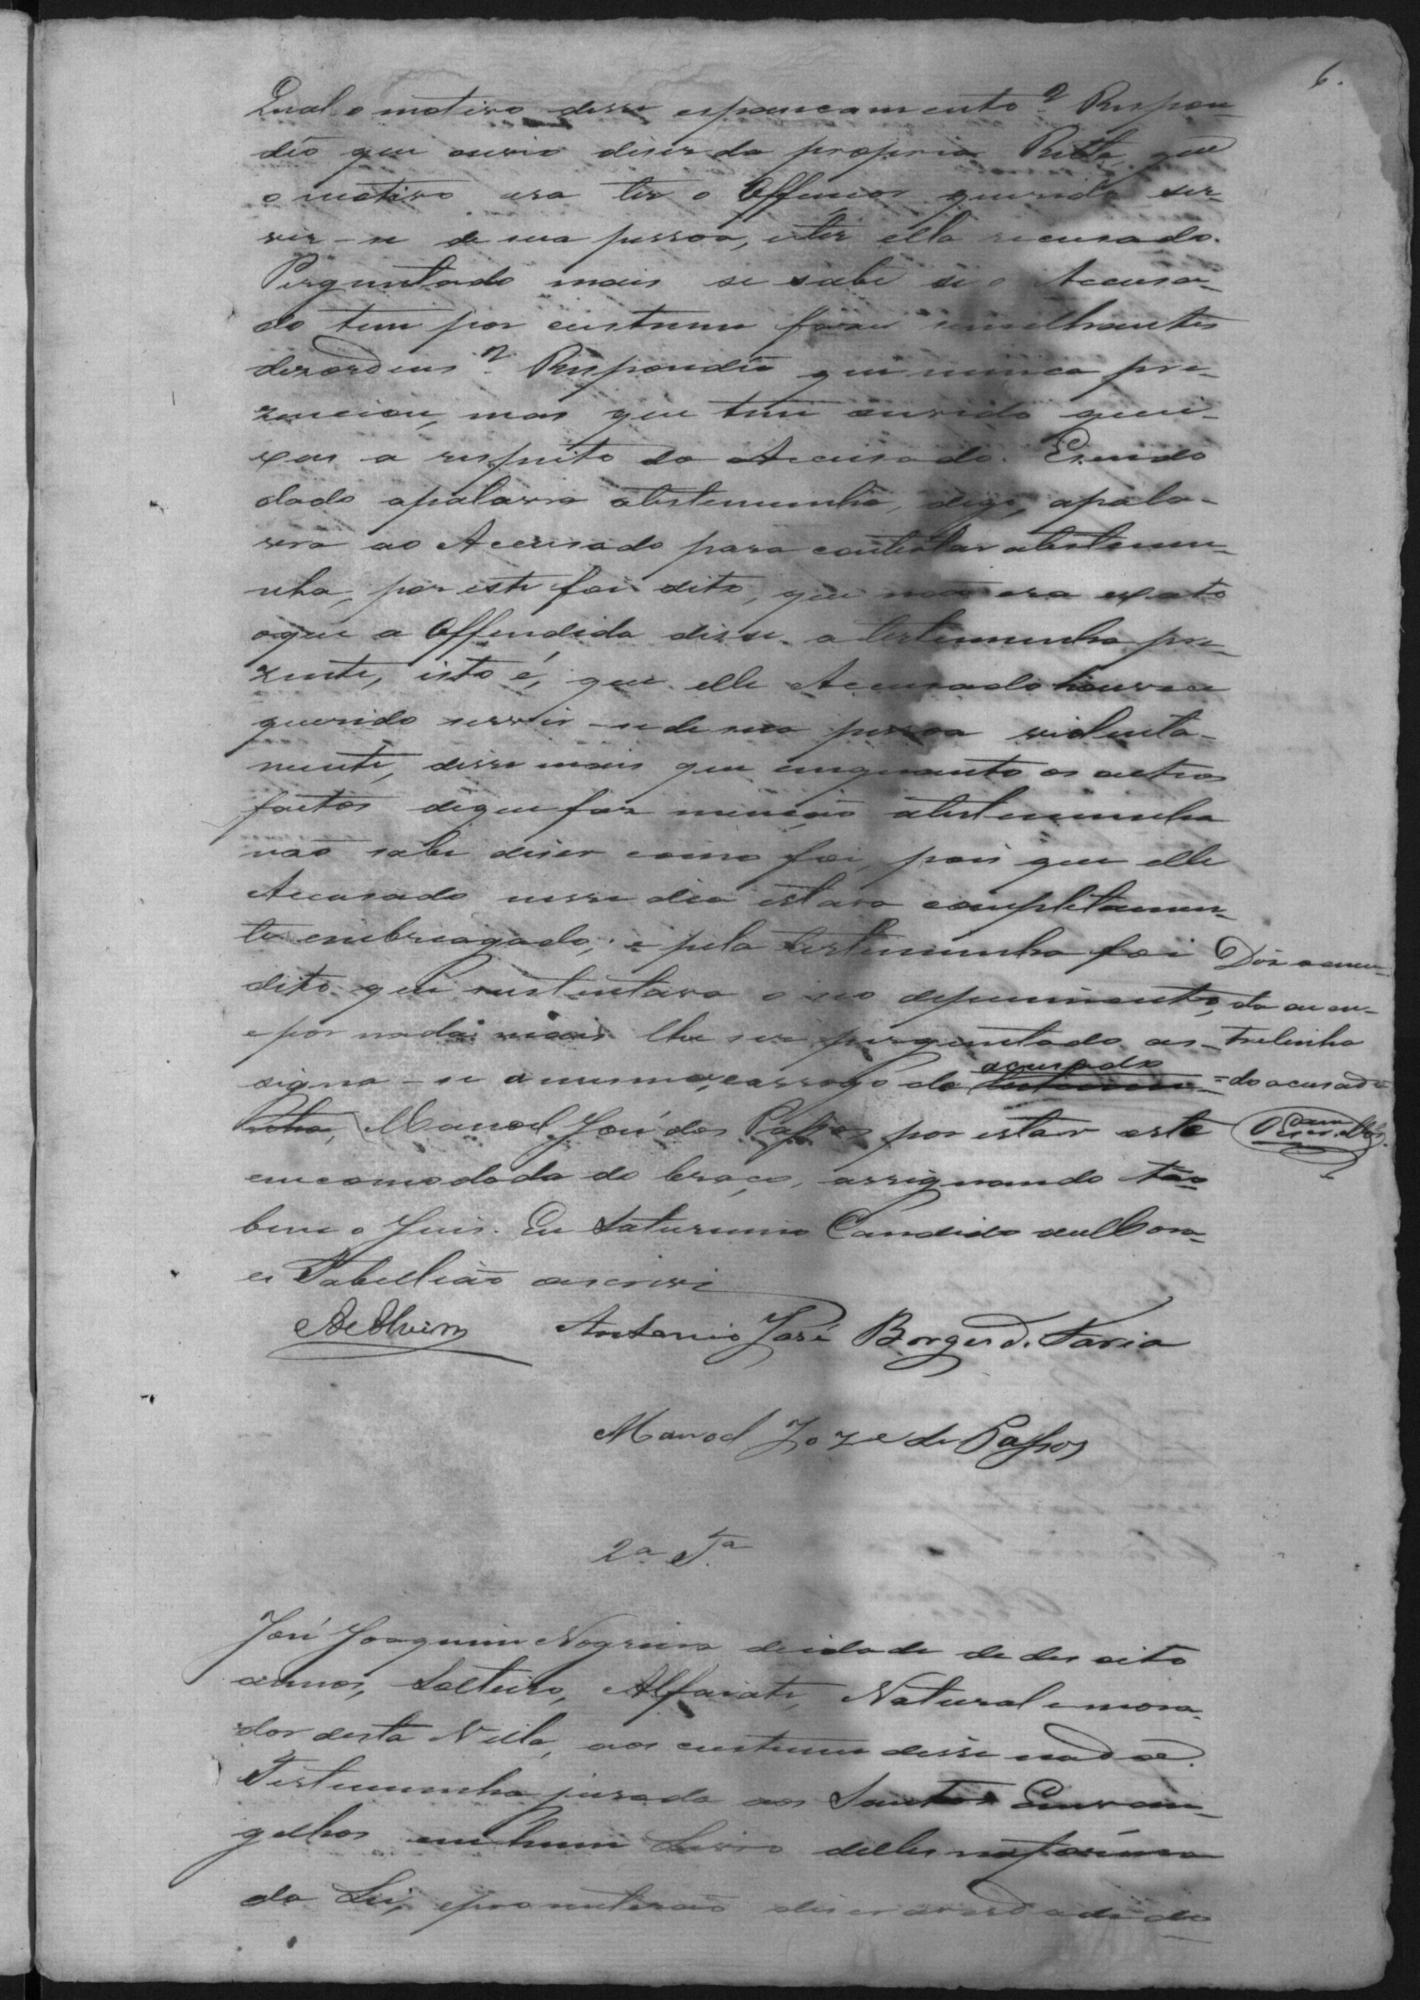 6.
Qual o motivo desse espancamento? Respon-
dêo que ouvio diser da propria Ritta, que
o motivo era ter o Offensor querido ser-
vir-se de sua pessoa, e ter ella recusado.
Perguntado mais se sabe se o Accusa-
do tem por custume faser similhantes
desordens? Respondêo que nunca pre-
zenciou, mas que tem ouvido quei-
xas a respeito do Accusado. E sendo
dado apalavra atestemunha, digo, apala-
vra ao Accusado para contestar atestemu-
nha, por este foi dito, que não era exato
oque a Offendida disse a testemunha pre-
zente, isto é, que elle Accusado houvece
querido servir-se de sua pessoa violenta-
mente, disse mais que emquanto os outros
factos de que faz menção atestemunha
não sabe diser como foi, pois que elle
Accusado nesse dia estava completamen-
te embreagado; e pela testemunha foi
dito que sustentava o seo depuimento,
e por nada mais lhe ser perguntado as-
signa-se a mesma, earrogo do acusado
Manoel José dos Passos por estar este
emcomodado do braço, assignando tão
bem o Juis. Eu Saturnino Candido de Mora-
es Tabellião escrevi
Dis a emen-
da ou en-
trelinha
=do acusado=
Antonio José Borges d. Faria
Manoel Joze de Passos
2ª Tª
José Joaquim Nogueira de idade de des oito
annos, Solteiro, Alfaiate, Natural e mora-
dor desta Villa, aos custumes disse nada.
Testemunha jurada aos Santos Envan-
gelhos em hum Livro delles na fórma
da Lei, e prometeo diser averdade do